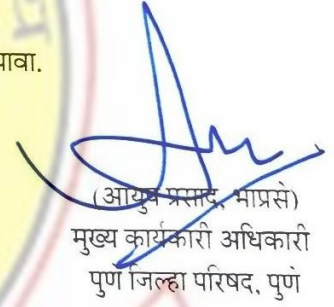 यावा.
(आयुष प्रसाद, भाप्रसे)
मुख्य कार्यकारी अधिकारी
पुणे जिल्हा परिषद, पुणे